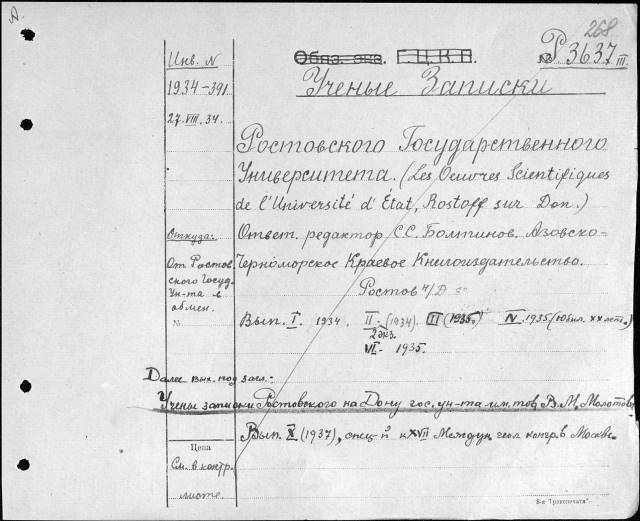 А.
268
Обяз. экз. Г.Ц.К.П.
№ Р 3637 III
Ученые Записки
Инв. №
1934-391
27. VIII. 34.
Ростовского Государственного
Университета. (Les Oeuvres Scientifiques
de l'Université d'État, Rostoff sur Don.)
Ответ. редактор С.С. Болтинов, Азовско-
Черноморское Краевое Книгоиздательство.
Ростов н/Д
Откуда:
От Ростов
ского Госуд.
Ун-та в
обмен.
№
Вып. I. 1934. II- (1934). III (1935.) IV 1935 (Юбил. XX лет.)
2 экз.
VI- 1935.
Далее вых. под загл.-
Ученые записки Ростовского на Дону гос. ун-та им. тов. В.М. Молотова
Вып. X (1937), спец-й к XVII Междун. геол. конгр. в Москве
Цена
См. в контр.
листе.
8-я "Транспечати"